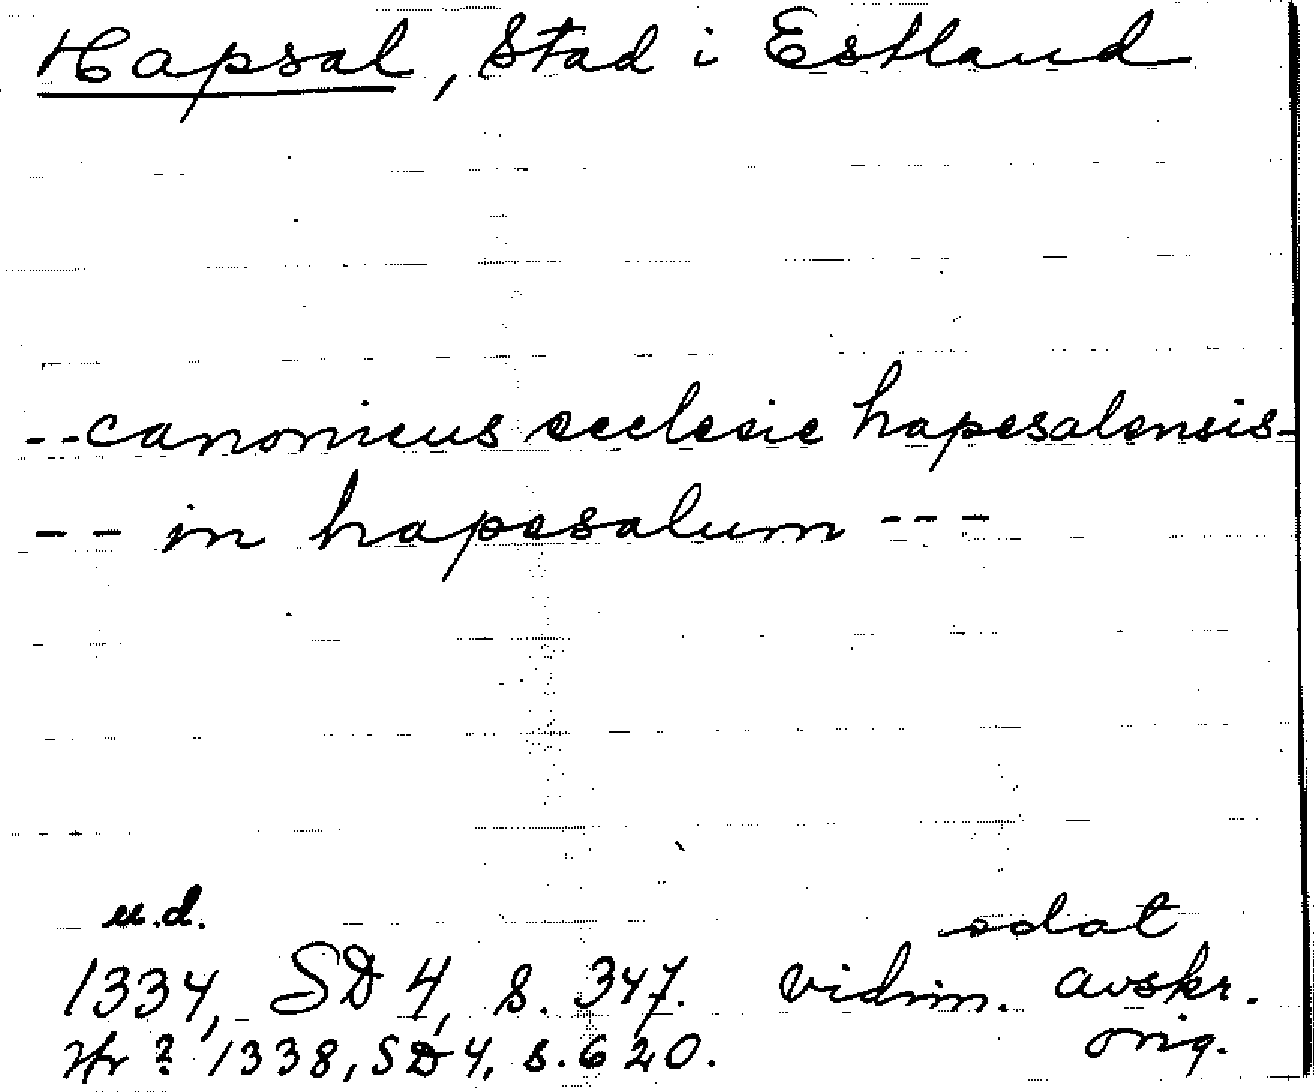 Hapsal, Stad i Estland
--canonicus ecclesie hapesalensis-
-- in hapesalum ---
u.d. odat
1334, SD 4, s. 347. vidim. avskr.
Jfr ? 1338, SD 4, s. 620. orig.